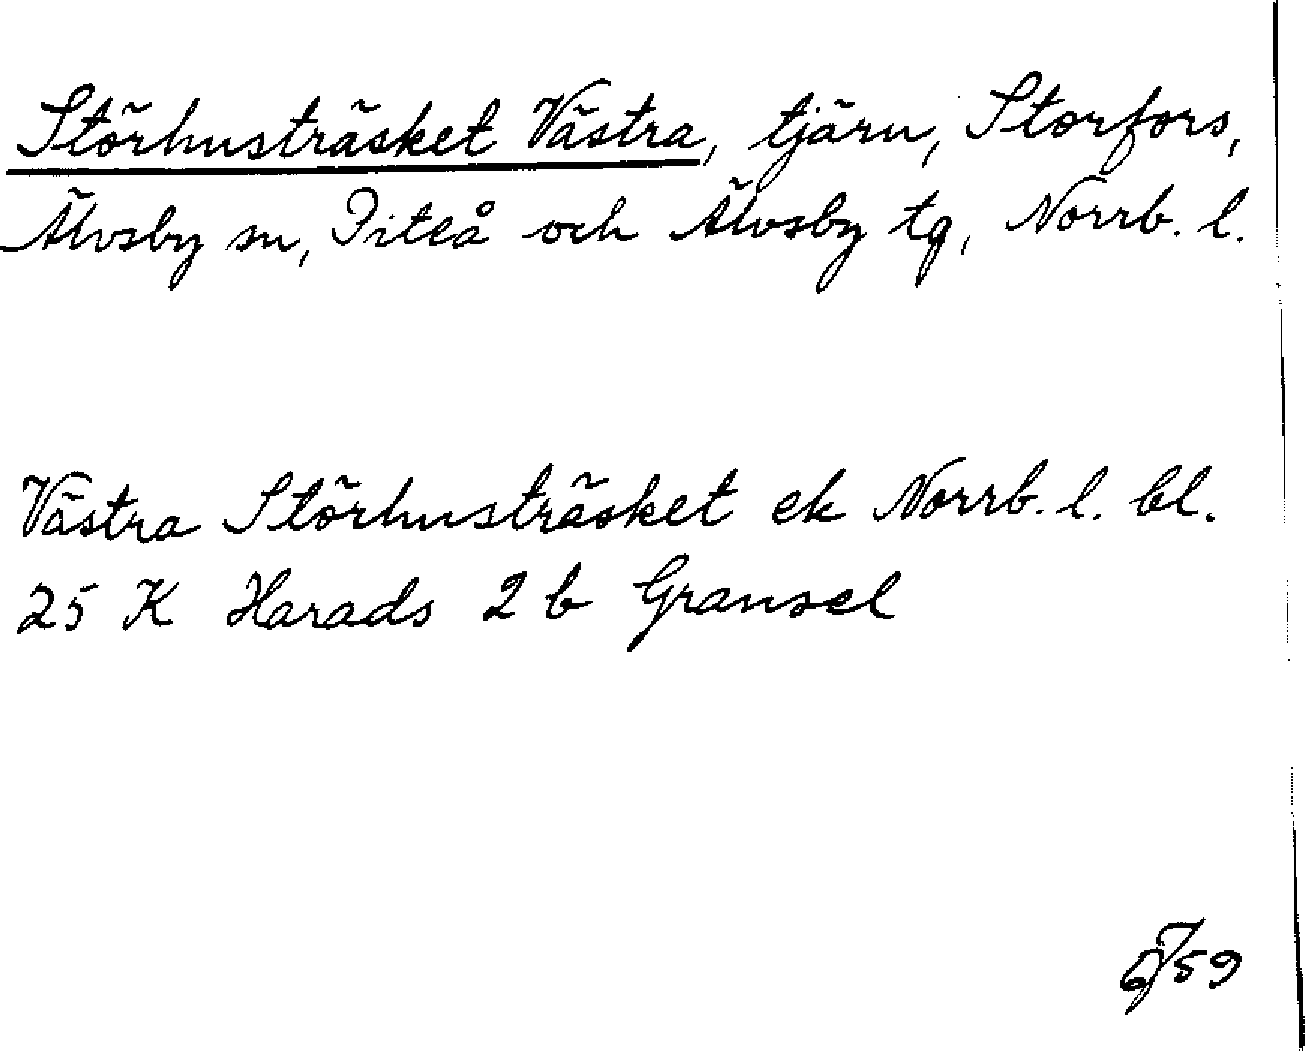 Störhusträsket Västra, tjärn, Storfors,
Älvsby sn, Piteå och Älvsby tg, Norrb. l.
Västra Störhusträsket ek Norrb. l. bl.
25 K Harads 2 b Gransel
59